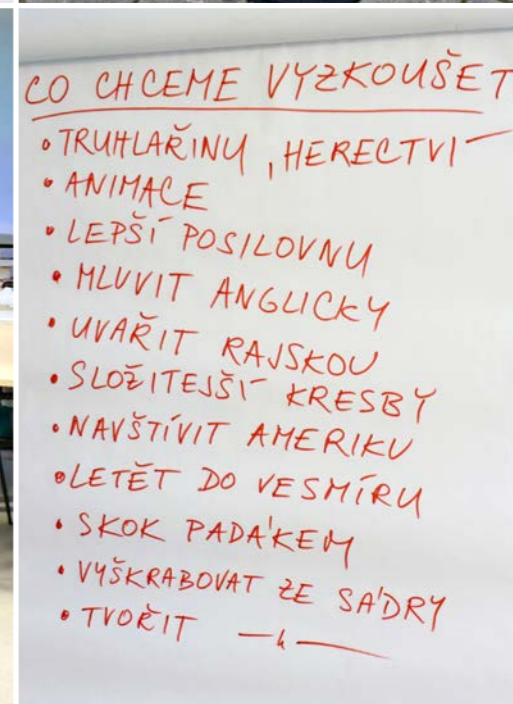 CO CHCEME VYZKOUŠET
• TRUHLAŘINU, HERECTVÍ
• ANIMACE
• LEPŠÍ POSILOVNU
• MLUVIT ANGLICKY
• UVAŘIT RAJSKOU
• SLOŽITEJŠÍ KRESBY
• NAVŠTÍVIT AMERIKU
• LETĚT DO VESMÍRU
• SKOK PADÁKEM
• VYŠKRABOVAT ZE SÁDRY
• TVOŘIT —"—